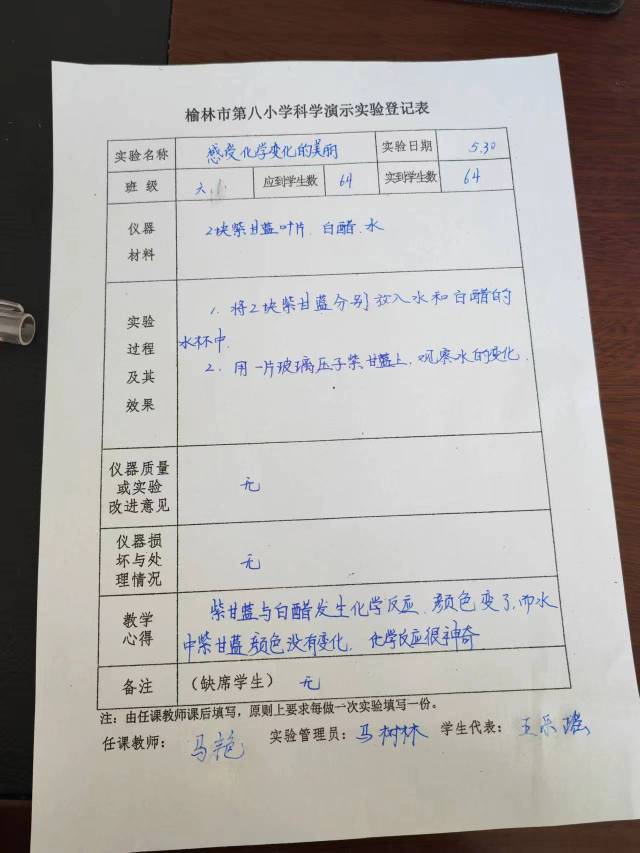 榆林市第八小学科学演示实验登记表
实验名称 感受化学变化的美丽 实验日期 5.30
班 级 六 应到学生数 64 实到学生数 64
仪器
材料
2块紫甘蓝叶片、白醋、水
实验
过程
及其
效果
1. 将2块紫甘蓝分别放入水和白醋的
水杯中.
2. 用一片玻璃压于紫甘蓝上,观察水的变化.
仪器质量
或实验
改进意见
无
仪器损
坏与处
理情况
无
教学
心得
紫甘蓝与白醋发生化学反应、颜色变了,而水
中紫甘蓝颜色没有变化, 化学反应很神奇
备注 (缺席学生) 无
注:由任课教师课后填写,原则上要求每做一次实验填写一份。
任课教师: 马艳 实验管理员: 马树林 学生代表: 王乐瑶